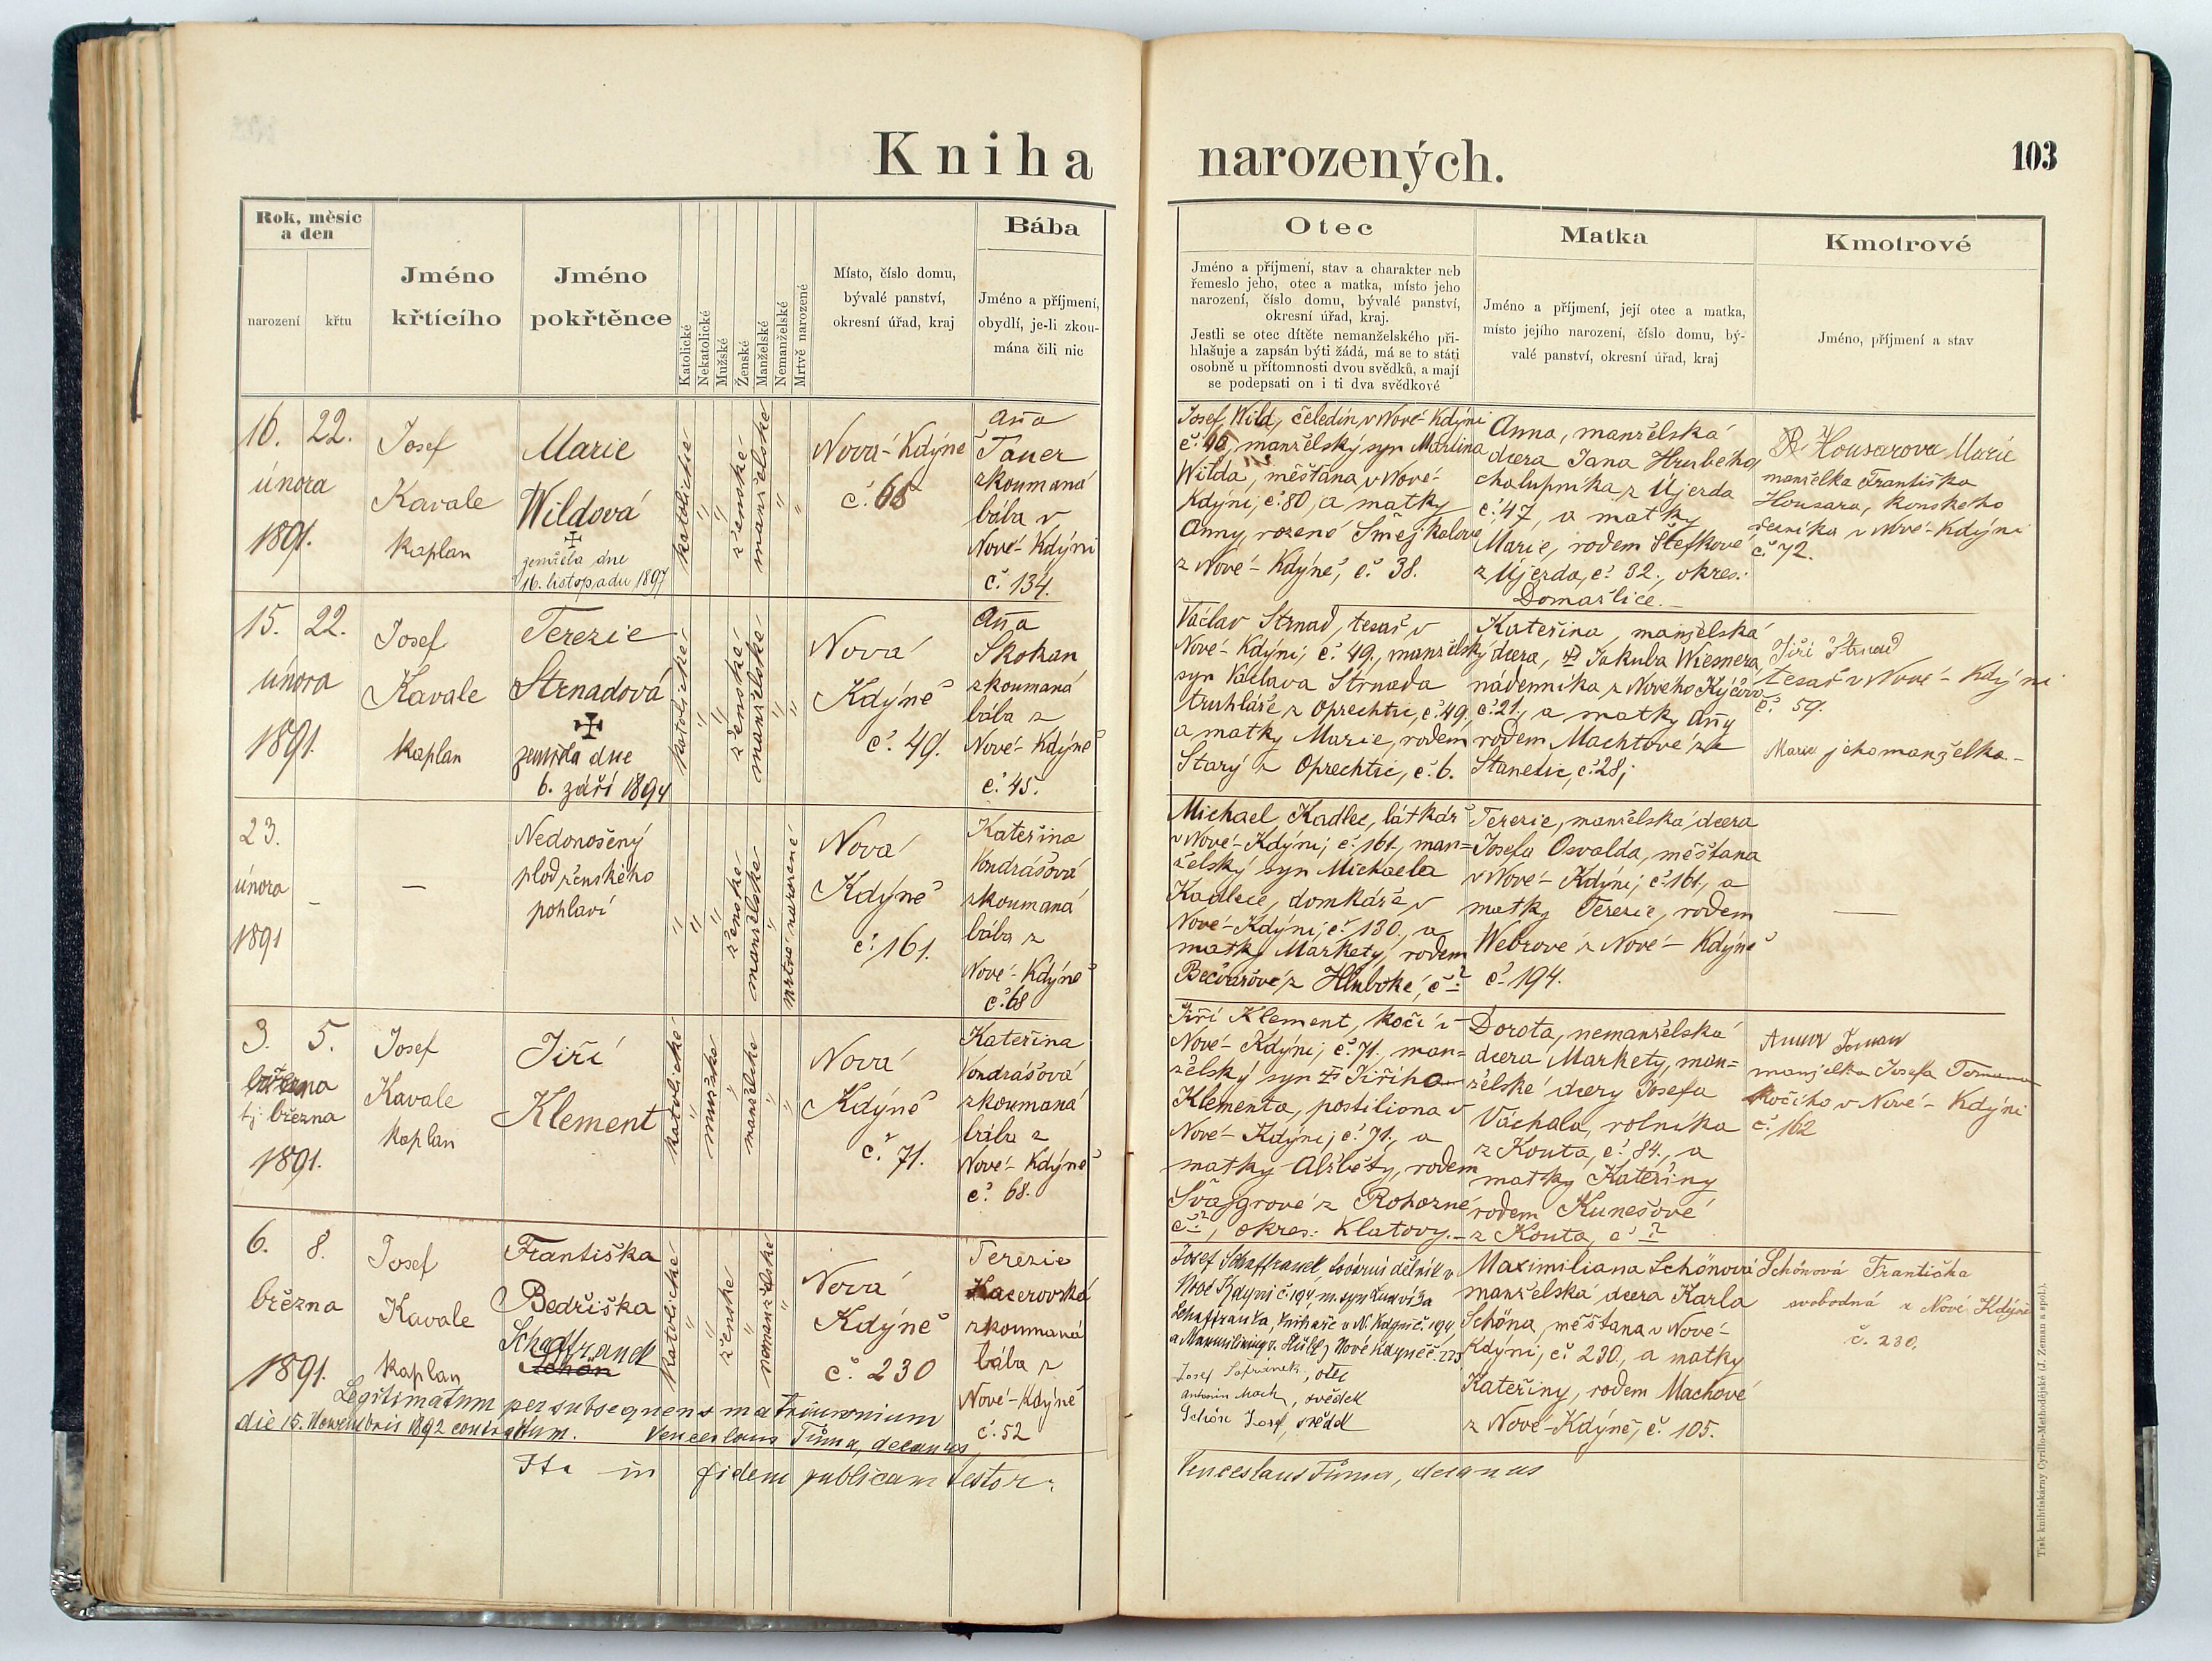 Kniha narozených.
103
Rok, měsíc a den
narození
křtu
Jméno křtícího
Jméno pokřtěnce
Katolické
Nekatolické
Mužské
Ženské
Manželské
Nemanželské
Mrtvě narozené
Místo, číslo domu,
bývalé panství,
okresní úřad, kraj
Bába
Jméno a příjmení,
obydlí, je-li zkou-
mána čili nic
Otec
Jméno a příjmení, stav a charakter neb
řemeslo jeho, otec a matka, místo jeho
narození, číslo domu, bývalé panství,
okresní úřad, kraj.
Jestli se otec dítěte nemanželského při-
hlašuje a zapsán býti žádá, má se to státi
osobně u přítomnosti dvou svědků, a mají
se podepsati on i ti dva svědkové
Matka
Jméno a příjmení, její otec a matka,
místo jejího narození, číslo domu, bý-
valé panství, okresní úřad, kraj
Kmotrové
Jméno, příjmení a stav
16. 22.
února
1891.
Josef
Kavale
kaplan
Marie
Wildová
zemřela dne
16. listopadu 1897
katolické
"
"
ženské
manželské
"
"
Nová-Kdýně
č. 68
Anna
Tauer
zkoumaná
bába v
Nové-Kdýni
č. 134.
Josef Wild, čeledín v Nové-Kdýni
č. 46, manželský syn Martina
Wilda, měšťana v Nové-
Kdýni, č. 80, a matky
Anny, rozené Smejkalové
z Nové-Kdýně, č. 38.
Anna, manželská
dcera Jana Hrubého,
chalupníka z Újezda
č. 47, a matky
Marie, rodem Štefkové
z Újezda, č. 32., okres.:
Domažlice.
Housarova Marie
manželka Františka
Housara, konského
řezníka v Nové-Kdýni
č. 72.
15. 22.
února
1891.
Josef
Kavale
kaplan
Terezie
Strnadová
zemřela dne
6. září 1894
katolické
"
"
ženské
manželské
"
"
Nová
Kdýně
č. 49.
Anna
Skokan
zkoumaná
bába z
Nové-Kdýně
č. 45.
Václav Strnad, tesař v
Nové-Kdýni, č. 49., manželský
syn Václava Strnada
truhláře z Oprechtic, č. 49,
a matky Marie, rodem
Starý z Oprechtic, č. 6.
Kateřina, manželská
dcera, Jakuba Wiesnera,
nádenníka z Nového Kýčova
č. 21., a matky Anny
rodem Machtové ze
Stanětic, č. 28;
Jiří Strnad
tesař v Nové-Kdýni
č. 59.
Marie jeho manželka.-
23.
února
1891
—
—
Nedonošený
plod ženského
pohlaví
"
"
"
ženské
manželské
"
mrtvě narozené
Nová
Kdýně
č. 161.
Kateřina
Vondrášová
zkoumaná
bába z
Nové-Kdýně
č. 68
Michael Kadlec, látkář
v Nové-Kdýni, č. 161., man=
želský syn Michaela
Kadlece, domkáře v
Nové-Kdýni, č. 130, a
matky Markety, rodem
Bečvářové z Hluboké, č. ?
Terezie, manželská dcera
Josefa Osvalda, měšťana
v Nové-Kdýni, č. 161., a
matky Terezie, rodem
Webrové z Nové-Kdýně
č. 194.
—
3. 5.
tj. března
1891.
Josef
Kavale
kaplan
Jiří
Klement
katolické
"
mužské
"
manželské
"
"
Nová
Kdýně
č. 71.
Kateřina
Vondrášová
zkoumaná
bába z
Nové-Kdýně
č. 68.
Jiří Klement, kočí v
Nové-Kdýni, č. 71., man=
želský syn Jiřího
Klementa, postiliona v
Nové-Kdýni, č. 71., a
matky Alžběty, rodem
Švajgrové z Rohozné
č. ?, okres: Klatovy.-
Dorota, nemanželská
dcera Markety, man=
želské dcery Josefa
Váchala, rolníka
z Kouta, č. 84., a
matky Kateřiny
rodem Kunešové
z Kouta, č. ?
Anna Toman
manželka Josefa Tomana
kočího v Nové-Kdýni
č. 162
6. 8.
března
1891.
Josef
Kavale
kaplan
Františka
Bedřiška
Schaffranek
Schön
katolické
"
"
ženské
"
nemanželské
"
Nová
Kdýně
č. 230
Terezie
Kacerovská
zkoumaná
bába z
Nové-Kdýně
č. 52
Josef Schaffranek, tovární dělník v
Nové Kdyni č. 194, m. syn Ludvíka
Schaffranka, v N. Kdyni č. 194
a Maxmiliany r. z Nové Kdyně č. 225
Josef Šafránek, otec
Antonín Mach, svědek
Schön Josef, svědek
Maximiliana Schönová
manželská dcera Karla
Schöna, měšťana v Nové-
Kdýni, č. 230, a matky
Kateřiny, rodem Machové
z Nové-Kdýně, č. 105.
Schönová Františka
svobodná z Nové Kdýně
č. 230.
Legitimatum per subsequens matrimonium
die 15. Novembris 1892 contractum. Venceslaus Tůma, decanus,
Ita in fidem publicam testor: Venceslaus Tůma, decanus
Tisk knihtiskárny Cyrillo-Methodějské (J. Zeman a spol.).